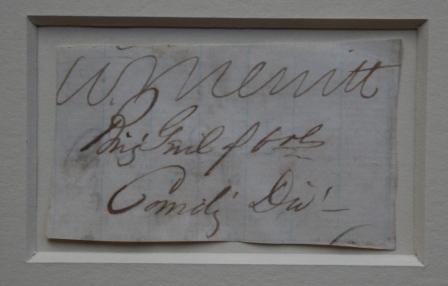 W. Merritt
Brig Genl of Vols
Comdg Div